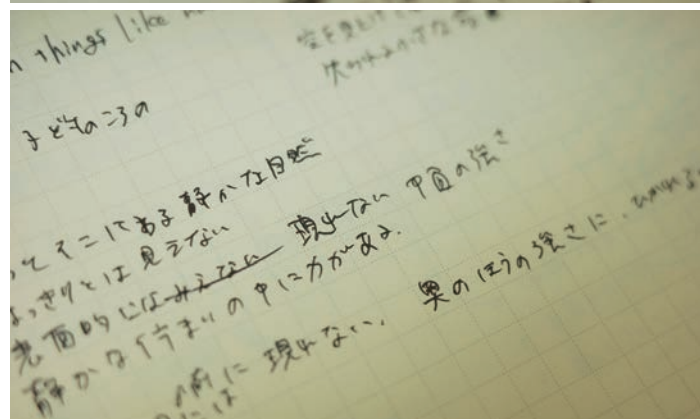 things like
子どものころの
そこにある静かな自然
っきりとは見えない
表面的にはみえない 現れない 内面の強さ
静かな佇まいの中に力がある。
の前に現れない、奥のほうの強さに、ひかれ
には